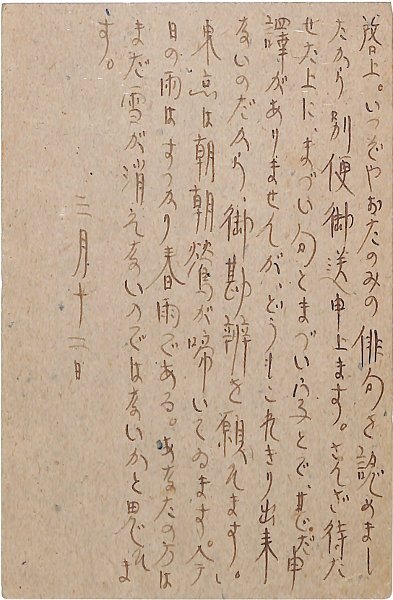 啓上。いつぞやおたのみの俳句を認めまし
たから別便御送申上ます。さんざ待た
せた上に、まづい句とまづい字とで、甚だ申
譯がありませんが、どうもこれきり出来
ないのだから、御勘辨を願ひます。
東京は朝朝鶯が啼いてゐます。今
日の雨はすつかり春雨である。あなたの方は
まだ雪が消えないのではないかと思はれま
す。
三月十二日